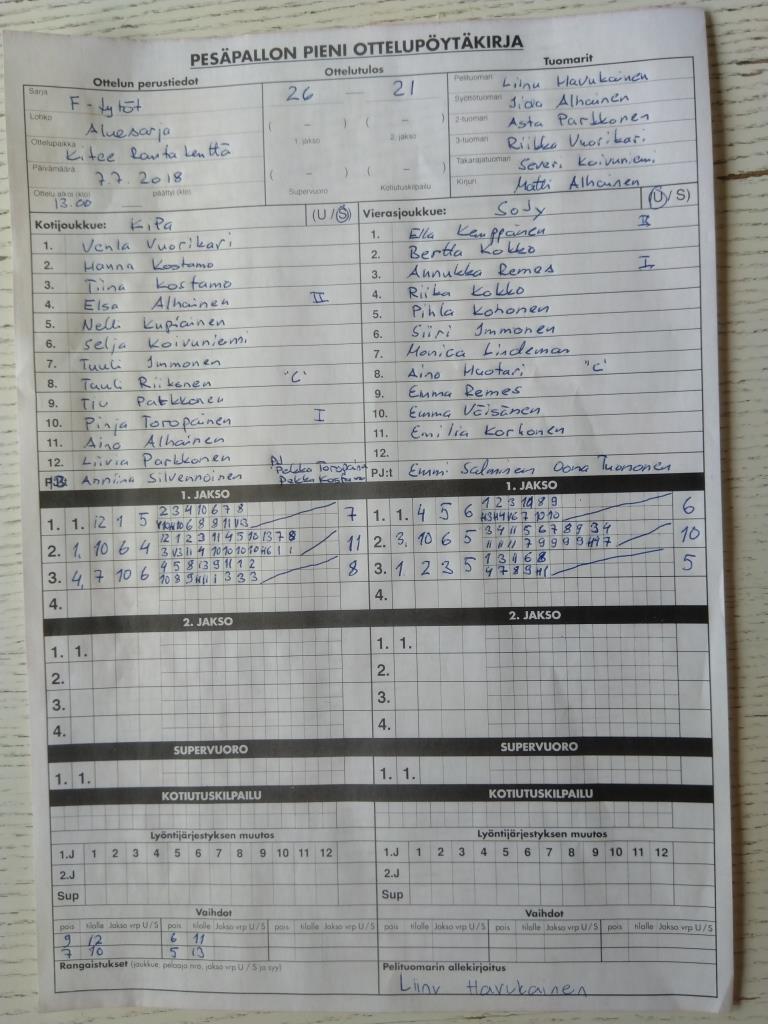 PESÄPALLON PIENI OTTELUPÖYTÄKIRJA
Ottelun perustiedot
Ottelutulos
Tuomarit
Sarja F-tytöt
Lohko Aluesarja
Ottelupaikka Kitee Rantakenttä
Päivämäärä 7.7.2018
Ottelu alkoi (klo) 13.00 päättyi (klo)
26 — 21
( – ) ( – )
1. jakso 2. jakso
( – ) ( – )
Supervuoro Kotiutuskilpailu
Pelituomari Liinu Havukainen
Syöttötuomari Iida Alhainen
2-tuomari Asta Parkkonen
3-tuomari Riikka Vuorikari
Takarajatuomari Severi Koivuniemi
Kirjuri Matti Alhainen
Kotijoukkue: KiPa (U / S)
1. Venla Vuorikari
2. Hanna Kostamo
3. Tiina Kostamo
4. Elsa Alhainen II
5. Nelli Kupiainen
6. Selja Koivuniemi
7. Tuuli Immonen
8. Tuuli Riikonen "C"
9. Tiu Parkkonen
10. Pinja Toropainen I
11. Aino Alhainen
12. Liivia Parkkonen
13 Anniina Silvennoinen
PJ Pekka Toropainen
Pekka Kostamo
Vierasjoukkue: SoJy (U / S)
1. Ella Kemppainen II
2. Bertta Kokko
3. Annukka Remes I
4. Riika Kokko
5. Pihla Kohonen
6. Siiri Immonen
7. Monica Lindeman
8. Aino Huotari "C"
9. Emma Remes
10. Emma Väisänen
11. Emilia Korhonen
12.
PJ:t Emmi Salminen Oona Tuononen
1. JAKSO
1. 1. 12 1 5 2 3 4 10 6 7 8 7
2. 1. 10 6 4 12 1 2 3 11 4 5 10 13 7 8 11
3. 4. 7 10 6 4 5 8 13 9 11 1 2 8
4.
1. JAKSO
1. 1. 4 5 6 1 2 3 10 8 9 6
2. 3. 10 6 5 3 4 11 5 6 7 8 9 3 4 10
3. 1 2 3 5 1 3 4 6 8 5
4.
2. JAKSO
1. 1.
2.
3.
4.
2. JAKSO
1. 1.
2.
3.
4.
SUPERVUORO
1. 1.
SUPERVUORO
1. 1.
KOTIUTUSKILPAILU
KOTIUTUSKILPAILU
Lyöntijärjestyksen muutos
1.J 1 2 3 4 5 6 7 8 9 10 11 12
2.J
Sup
Lyöntijärjestyksen muutos
1.J 1 2 3 4 5 6 7 8 9 10 11 12
2.J
Sup
Vaihdot
pois tilalle Jakso vrp U / S pois tilalle Jakso vrp U / S pois tilalle Jakso vrp U / S
9 12 6 11
7 10 5 13
Vaihdot
pois tilalle Jakso vrp U / S pois tilalle Jakso vrp U / S pois tilalle Jakso vrp U / S
Rangaistukset (joukkue, pelaaja nro, jakso vrp U / S ja syy)
Pelituomarin allekirjoitus
Liinu Havukainen